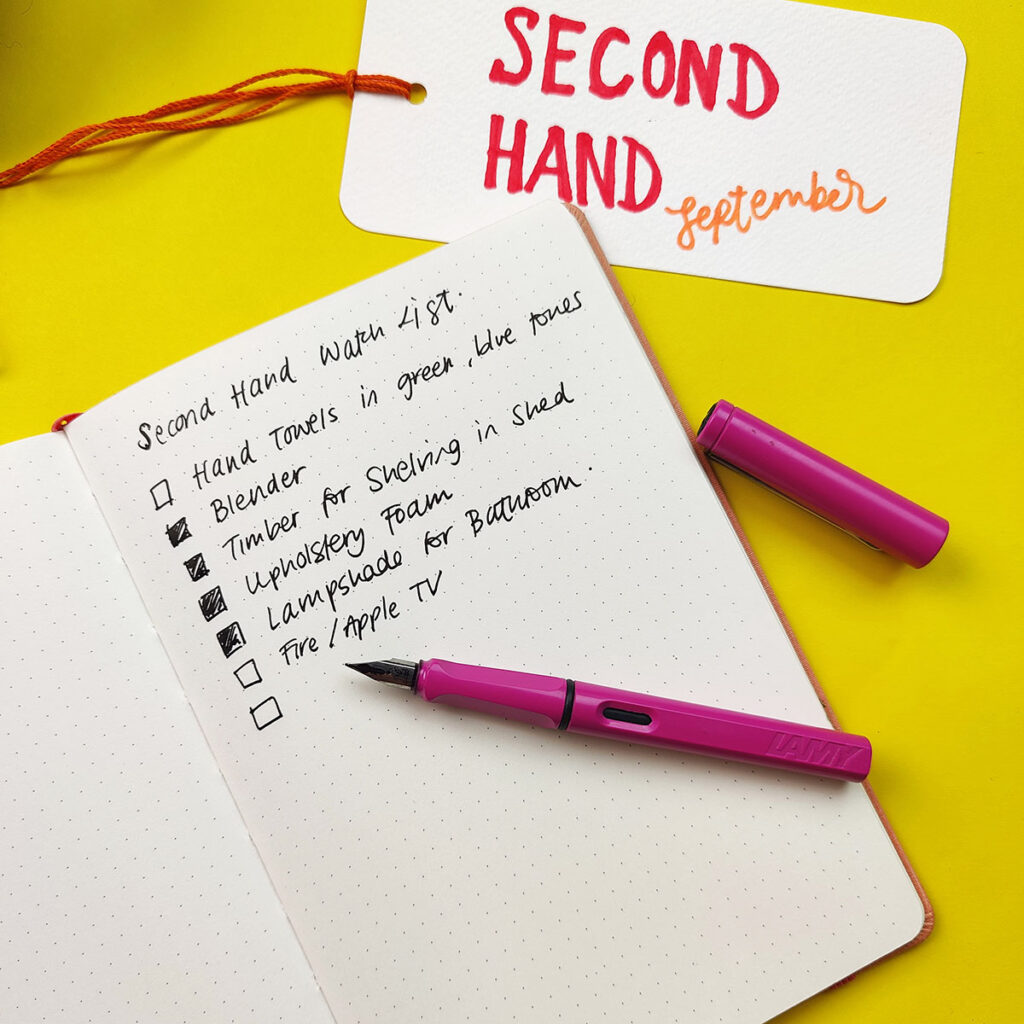 SECOND
HAND
september
Second Hand Watch List.
Hand Towels in green, blue tones
Blender
Timber for Shelving in Shed
Upholstery Foam
Lampshade for Bathroom.
Fire / Apple TV
LAMY